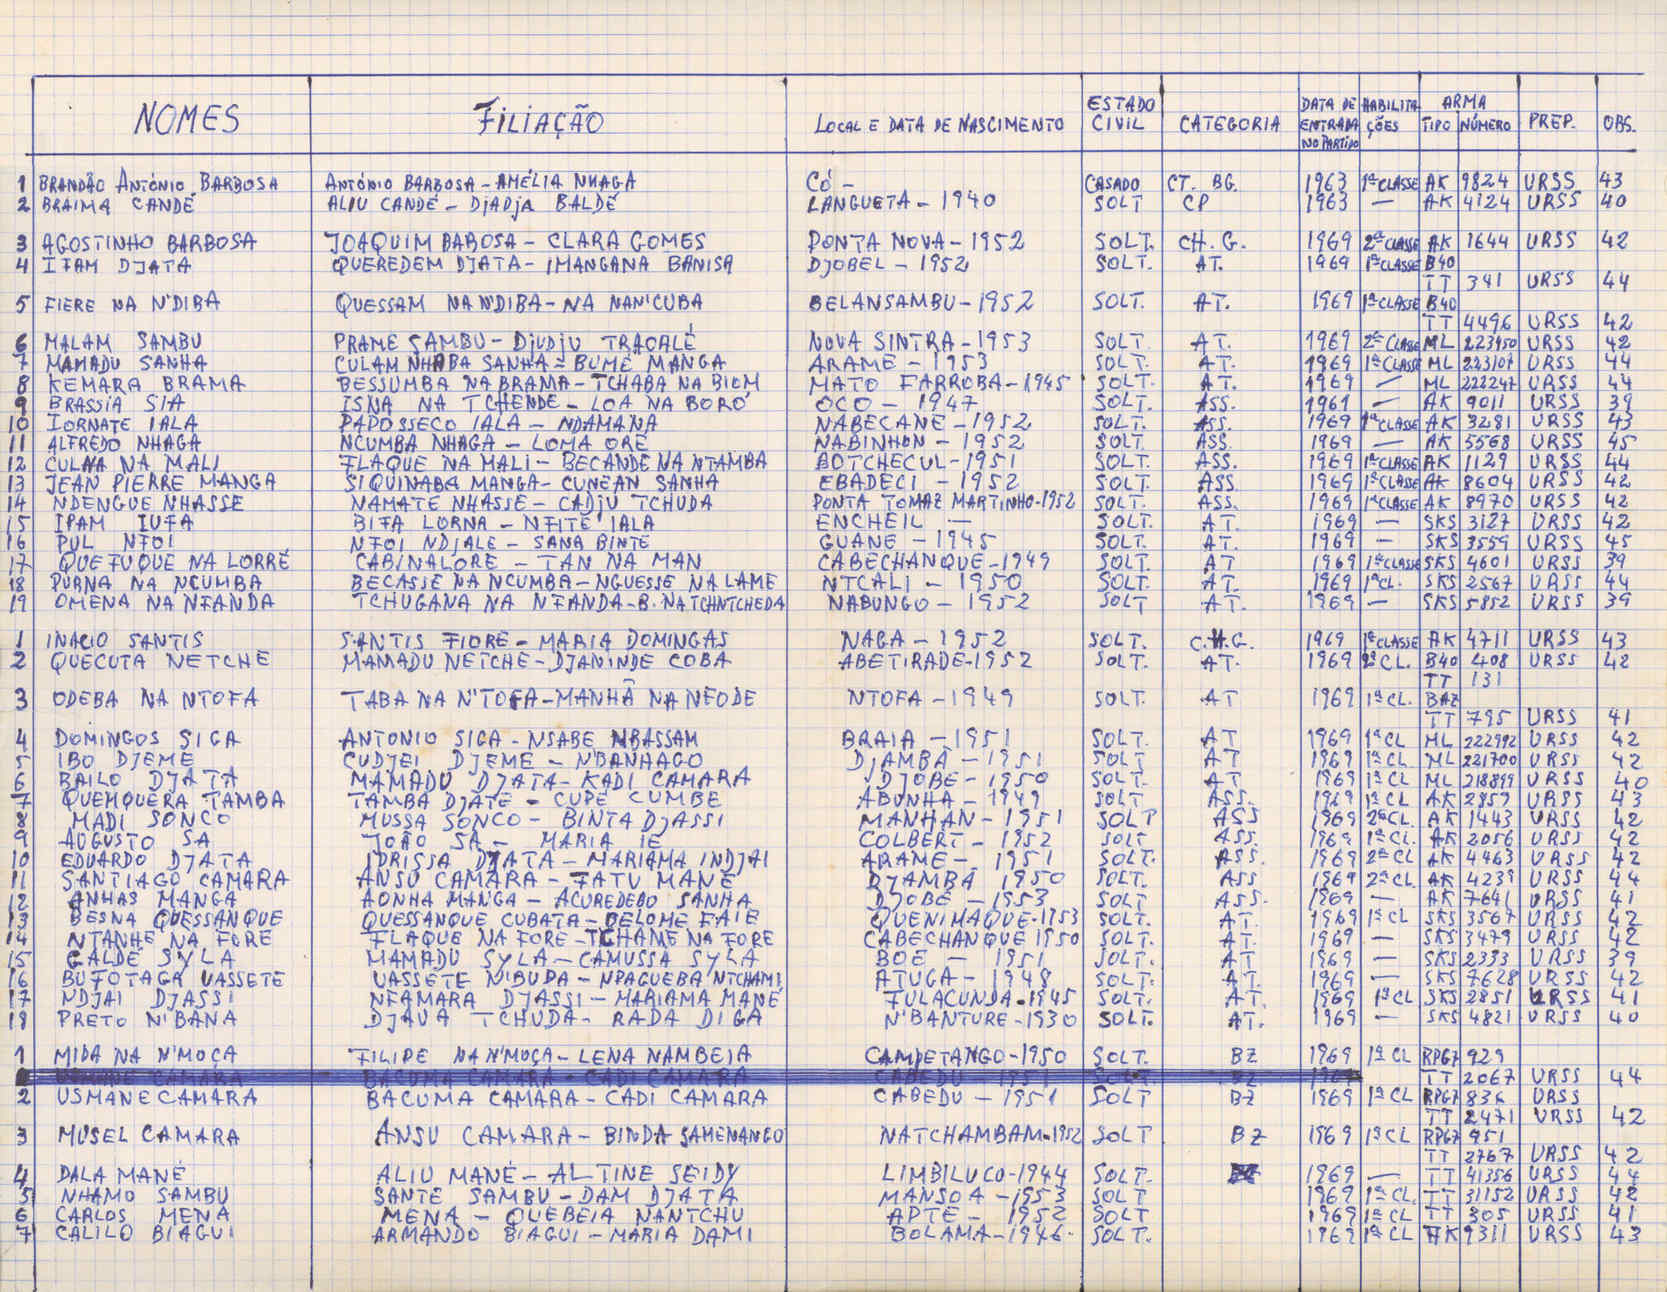 NOMES FILIAÇÃO LOCAL E DATA DE NASCIMENTO ESTADO CIVIL CATEGORIA DATA DE ENTRADA NO PARTIDO HABILITAÇÕES ARMA TIPO NÚMERO PREP. OBS.
1 BRANDÃO ANTÓNIO BARBOSA ANTÓNIO BARBOSA - AMÉLIA NHAGA CÓ - CASADO CT. BG. 1963 1ª CLASSE AK 9824 URSS 43
2 BRAIMA CANDÉ ALIU CANDÉ - DJADJA BALDÉ LANGUETA - 1940 SOLT CP 1963 — AK 4124 URSS 40
3 AGOSTINHO BARBOSA JOAQUIM BABOSA - CLARA GOMES PONTA NOVA - 1952 SOLT. CH. G. 1969 2ª CLASSE AK 1644 URSS 42
4 IFAM DJATA QUEREDEM DJATA - IMANGANA BANISA DJOBEL - 1952 SOLT. AT. 1969 1ª CLASSE B40
TT 341 URSS 44
5 FIERE NA N'DIBA QUESSAM NA N'DIBA - NA NAN'CUBA BELANSAMBU - 1952 SOLT. AT. 1969 1ª CLASSE B40
TT 4496 URSS 42
6 MALAM SAMBU PRAME SAMBU - DJUDJU TRACALÉ NOVA SINTRA - 1953 SOLT. AT. 1969 2ª CLASSE ML 223950 URSS 42
7 MAMADU SANHA CULAM NHABA SANHA - BUMÉ MANGA ARAME - 1953 SOLT. AT. 1969 1ª CLASSE ML 223107 URSS 44
8 KEMARA BRAMA BESSUMBA NA BRAMA - TCHABA NA BIOM MATO FARROBA - 1945 SOLT. AT. 1969 — ML 222247 URSS 44
9 BRASSIA SIA ISNA NA TCHENDE - LOA NA BORÓ OCO - 1947 SOLT. ASS. 1961 — AK 9011 URSS 39
10 IORNATE IALA PADOSSECO IALA - NDAMANA NABECANE - 1952 SOLT. ASS. 1969 1ª CLASSE AK 3281 URSS 43
11 ALFREDO NHAGA NCUMBA NHAGA - LOMA ORE NABINHON - 1952 SOLT. ASS. 1969 — AK 5568 URSS 45
12 CULNA NA MALI FLAQUE NA MALI - BECANDE NA NTAMBA BOTCHECUL - 1951 SOLT. ASS. 1969 1ª CLASSE AK 1129 URSS 44
13 JEAN PIERRE MANGA SIQUINABA MANGA - CUNEAN SANHA EBADECI - 1952 SOLT. ASS. 1969 1ª CLASSE AK 8604 URSS 42
14 NDENGUE NHASSE NAMATE NHASSE - CADJU TCHUDA PONTA TOMAZ MARTINHO - 1952 SOLT. ASS. 1969 1ª CLASSE AK 8970 URSS 42
15 IPAM IUFA BIFA LORNA - NFITE IALA ENCHEIL — SOLT. AT. 1969 — SKS 3127 URSS 42
16 PUL NFOI NFOI NDJALE - SANA BINTE GUANE - 1945 SOLT. AT. 1969 — SKS 3559 URSS 45
17 QUEFUQUE NA LORRÉ CABINALORE - TAN NA MAN CABECHANQUE - 1949 SOLT. AT 1969 1ª CLASSE SKS 4601 URSS 39
18 PURNA NA NCUMBA BECASSE NA NCUMBA - NGUESSE NA LAME NTCALI - 1950 SOLT. AT. 1969 1ª CL. SKS 2567 URSS 44
19 OMENA NA NFANDA TCHUGANA NA NFANDA - B. NA TCHNTCHEDA NABUNGO - 1952 SOLT AT. 1969 — SKS 5852 URSS 39
1 INACIO SANTIS SANTIS FIORE - MARIA DOMINGAS NAGA - 1952 SOLT. C.H.G. 1969 1ª CLASSE AK 4711 URSS 43
2 QUECUTA NETCHE MAMADU NETCHE - DJANINDE COBA ABETIRADE - 1952 SOLT. AT. 1969 2ª CL. B40 408 URSS 42
TT 131
3 ODEBA NA NTOFA TABA NA N'TOFA - MANHÃ NA NFODE NTOFA - 1949 SOLT. AT 1969 1ª CL. BAZ
TT 795 URSS 41
4 DOMINGOS SIGA ANTONIO SIGA - NSABE NBASSAM BRAIA - 1951 SOLT. AT 1969 1ª CL ML 222992 URSS 42
5 IBO DJEME CUDJEI DJEME - N'DANHAGO DJAMBA - 1951 SOLT AT 1969 1ª CL. ML 221700 URSS 42
6 BAILO DJATA MAMADU DJATA - KADI CAMARA DJOBE - 1950 SOLT. AT 1969 1ª CL ML 218899 URSS 40
7 QUEMQUERA TAMBA TAMBA DJATE - CUPE CUMBE ABUNHA - 1949 SOLT ASS. 1969 1ª CL AK 2859 URSS 43
8 MADI SONCO MUSSA SONCO - BINTA DJASSI MANHAN - 1951 SOLT ASS 1969 2ª CL. AK 1443 URSS 42
9 AUGUSTO SA JOÃO SA - MARIA IE COLBERT - 1952 SOLT ASS. 1969 1ª CL. AK 2056 URSS 42
10 EDUARDO DJATA IDRISSA DJATA - MARIAMA INDJAI ARAME - 1951 SOLT. ASS. 1969 2ª CL AK 4463 URSS 42
11 SANTIAGO CAMARA ANSU CAMARA - FATU MANE DJAMBA 1950 SOLT. ASS 1969 2ª CL. AK 4239 URSS 44
12 ANHAS MANGA AONHA MANGA - ACUREDEBO SANHA DJOBE - 1953 SOLT ASS. 1969 — AK 7641 URSS 41
13 BESNA QUESSANQUE QUESSANQUE CUBATA - BELOME FAIE QUENIMAQUE - 1953 SOLT. AT. 1969 1ª CL SKS 3567 URSS 42
14 NTANHE NA FORE FLAQUE NA FORE - TCHAME NA FORE CABECHANQUE 1950 SOLT. AT. 1969 — SKS 3479 URSS 42
15 GALDÉ SYLA MAMADU SYLA - CAMUSSA SYLA BOE - 1951 SOLT. AT 1969 — SKS 2393 URSS 39
16 BUFOTAGA UASSETE UASSETE N'BUDA - NPAGUEBA NTCHAMI ATUGA - 1948 SOLT. AT. 1969 — SKS 7628 URSS 42
17 NDJAI DJASSI NFAMARA DJASSI - MARIAMA MANÉ FULACUNDA - 1945 SOLT. AT. 1969 1ª CL SKS 2851 URSS 41
18 PRETO N'BANA DJAUA TCHUDA - RADA DIGA N'BANTURE - 1930 SOLT. AT. 1969 — SKS 4821 URSS 40
1 MIDA NA N'MOÇA FILIPE NA N'MOÇA - LENA NAMBEIA CAMPETANGO - 1950 SOLT. BZ 1969 1ª CL RPG7 929
TT 2067 URSS 44
2 USMANE CAMARA BACUMA CAMARA - CADI CAMARA CABEDU - 1951 SOLT BZ 1969 1ª CL RPG7 836 URSS
TT 2471 URSS 42
3 MUSEL CAMARA ANSU CAMARA - BINDA SAMENANGO NATCHAMBAM - 1952 SOLT BZ 1969 1ª CL RPG7 951
TT 2767 URSS 42
4 DALA MANÉ ALIU MANÉ - ALTINE SEIDY LIMBILUCO - 1944 SOLT. 1969 — TT 41356 URSS 44
5 NHAMO SAMBU SANTE SAMBU - DAM DJATA MANSOA - 1953 SOLT 1969 1ª CL. TT 31152 URSS 42
6 CARLOS MENA MENA - QUEBEIA NANTCHU APTE - 1952 SOLT 1969 1ª CL TT 305 URSS 41
7 CALILO BIAGUI ARMANDO BIAGUI - MARIA DAMI BOLAMA - 1946. SOLT. 1969 1ª CL AK 9311 URSS 43